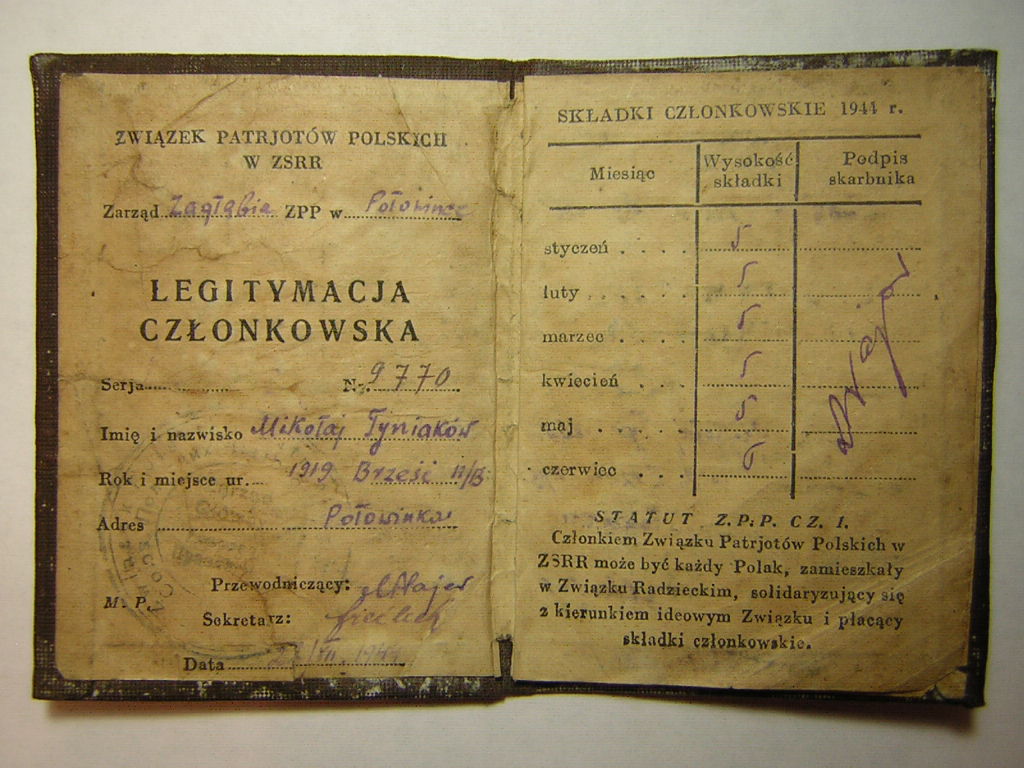 ZWIĄZEK PATRJOTÓW POLSKICH
W ZSRR
Zarząd Zagłębie ZPP w Połowince
LEGITYMACJA
CZŁONKOWSKA
Serja............... Nr. 9770
Imię i nazwisko Mikołaj Tyniaków
Rok i miejsce ur. 1919 Brześć n/B
Adres Połowinka
Przewodniczący:
M. P.
Sekretarz:
Data
SKŁADKI CZŁONKOWSKIE 1944 r.
Miesiąc Wysokość składki Podpis skarbnika
styczeń . . . . 5
luty . . . . 5
marzec . . . . 5
kwiecień . . . 5
maj . . . . 5
czerwiec . . .
STATUT Z.P.P. CZ. I.
Członkiem Związku Patrjotów Polskich w
ZSRR może być każdy Polak, zamieszkały
w Związku Radzieckim, solidaryzujący się
z kierunkiem ideowym Związku i płacący
składki członkowskie.